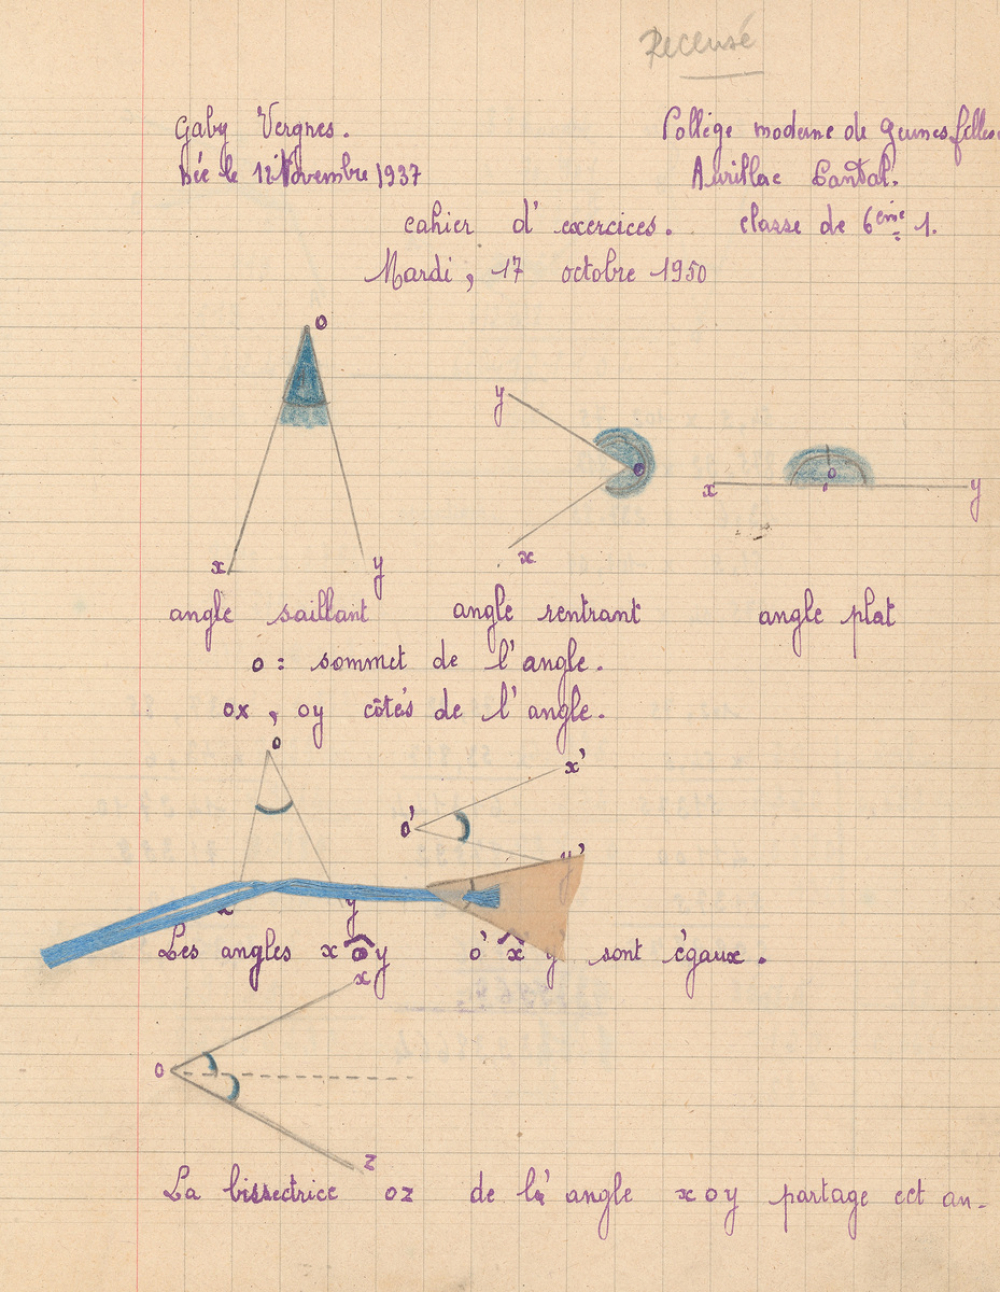 Recensé
Gaby Vergnes. Collège moderne de jeunes filles
née le 12 Novembre 1937 Aurillac Cantal.
cahier d'exercices. classe de 6ème 1.
Mardi, 17 octobre 1950
o
y
o
o
x y
x y
x
angle saillant angle rentrant angle plat
o : sommet de l'angle.
ox, oy côtés de l'angle.
o
x'
o'
y'
x y
Les angles x o y o' x' y' sont égaux.
x
o
z
La bissectrice oz de l'angle xoy partage cet an-